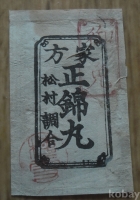 家方
正錦丸
松村調合
kobay